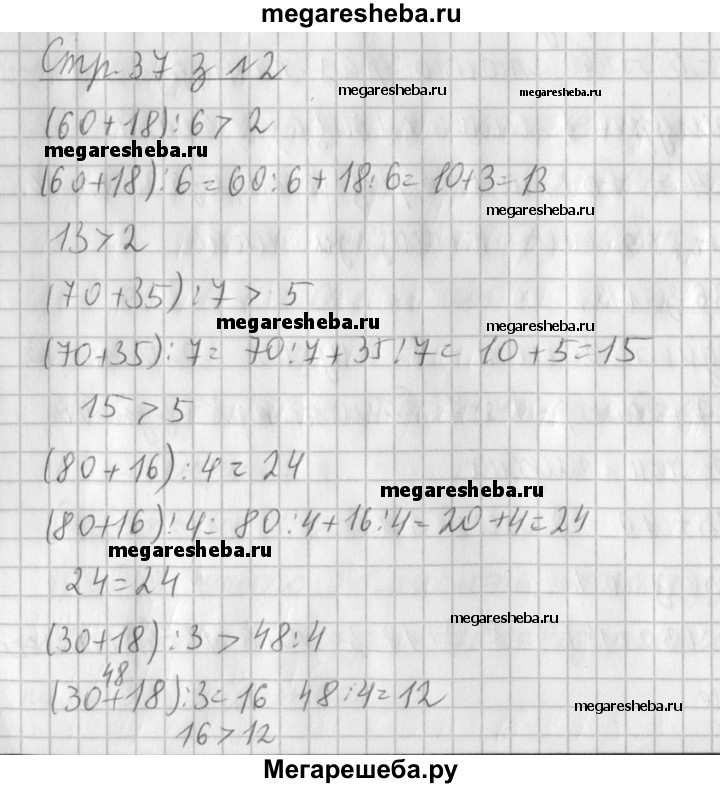 megaresheba.ru
Стр. 37 з №2
megaresheba.ru
megaresheba.ru
(60+18):6 > 2
megaresheba.ru
(60+18):6 = 60:6 + 18:6 = 10+3 = 13
megaresheba.ru
13 > 2
(70+35):7 > 5
megaresheba.ru
megaresheba.ru
(70+35):7 = 70:7 + 35:7 = 10+5 = 15
15 > 5
(80+16):4 = 24
megaresheba.ru
(80+16):4 = 80:4 + 16:4 = 20+4 = 24
megaresheba.ru
24 = 24
megaresheba.ru
(30+18):3 > 48:4
48
(30+18):3 = 16 48:4 = 12
megaresheba.ru
16 > 12
Мегарешеба.ру